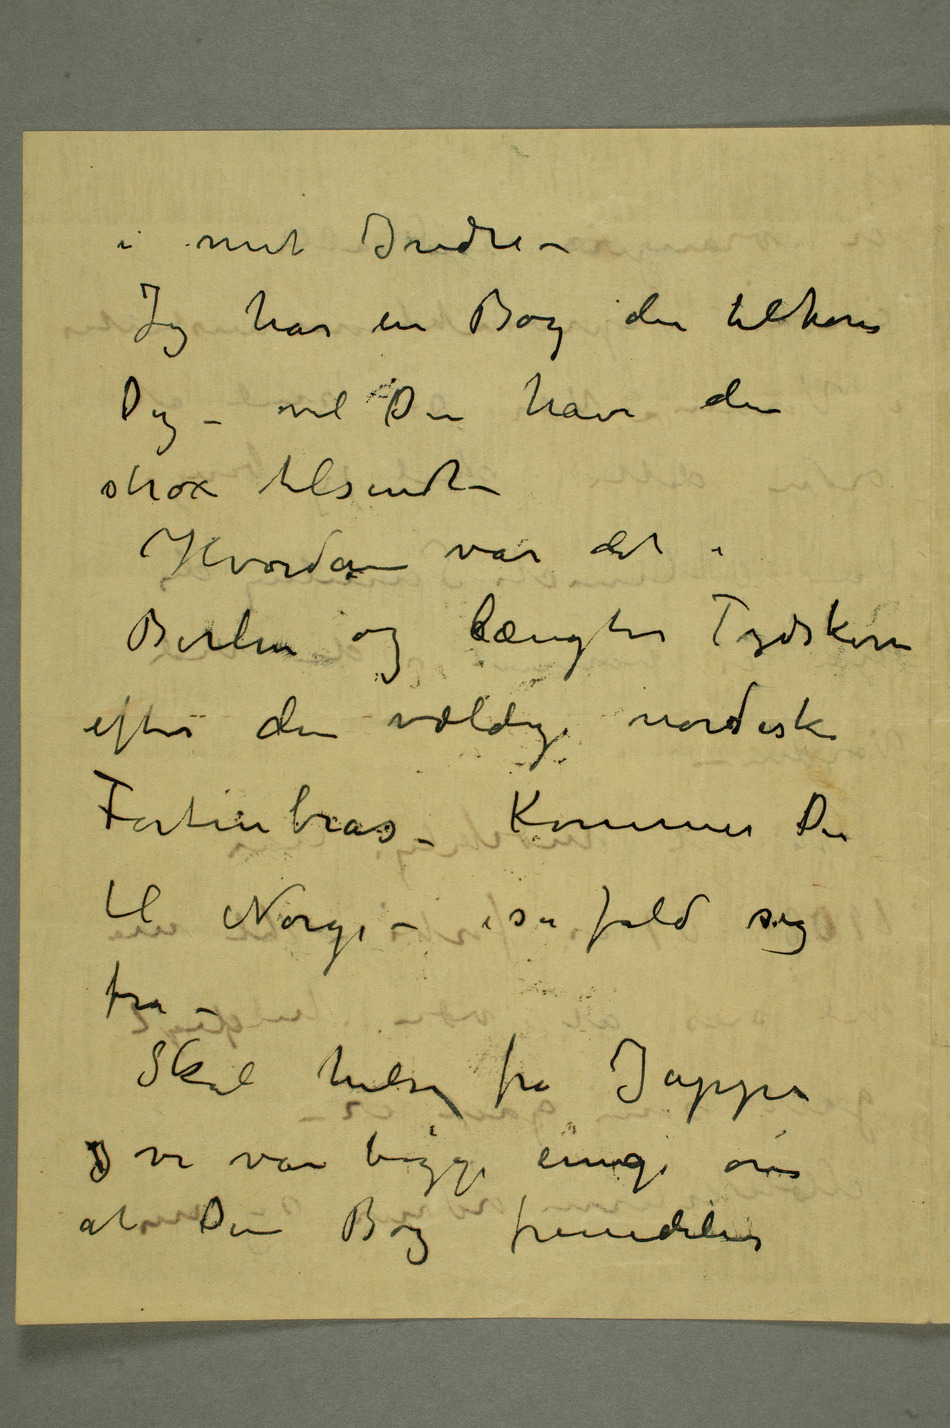 i mit Indre –
Jeg har en Bog der tilhører
Dig – vil Du have den
strax tilsendt –
Hvordan var det i
Berlin og længter Tydskern
efter den vældige nordiske
Fortinbras – Kommer Du
til Norge – i så fald sig
fra –
Skal hilse fra Jappe
og vi var bigge enige om
at Din Bog fremdeles